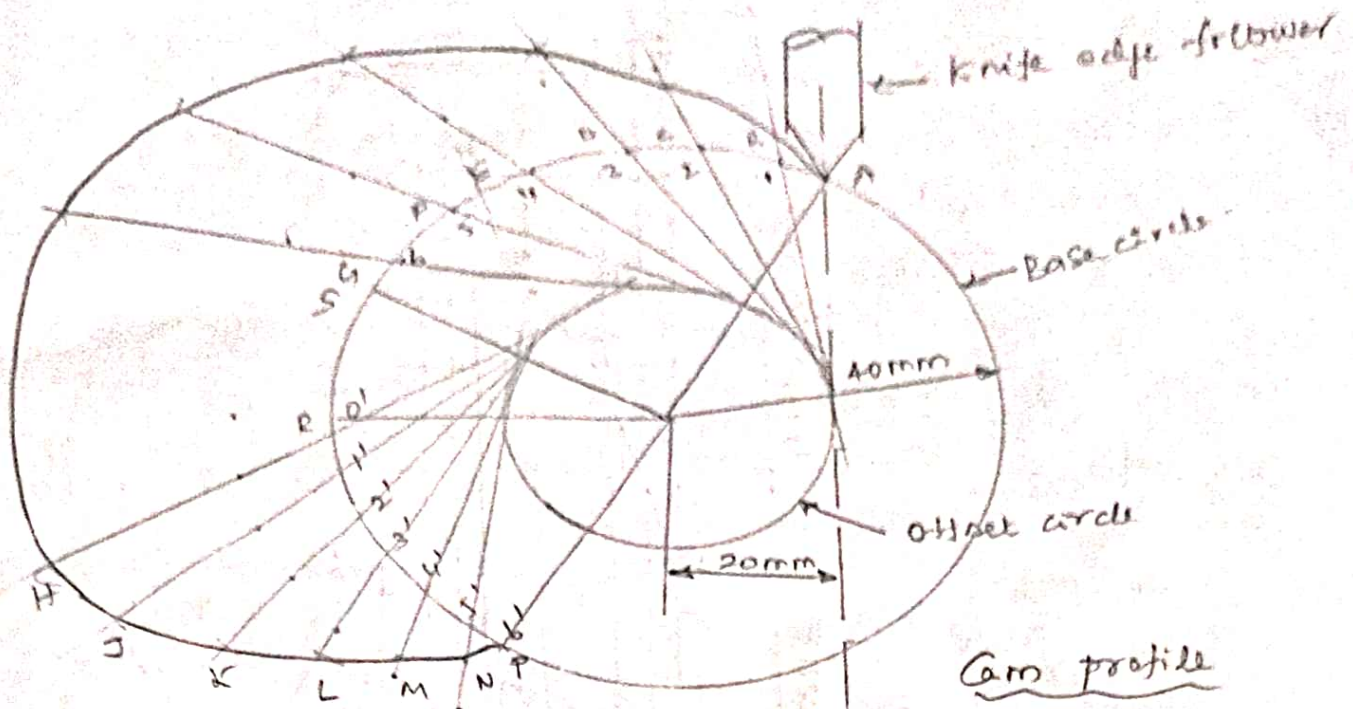 Knife edge follower
A
Base circle
40mm
Offset circle
20mm
Cam profile
G
S
0'
1'
2'
3'
4'
5'
6'
H
J
K
L
M
N
P